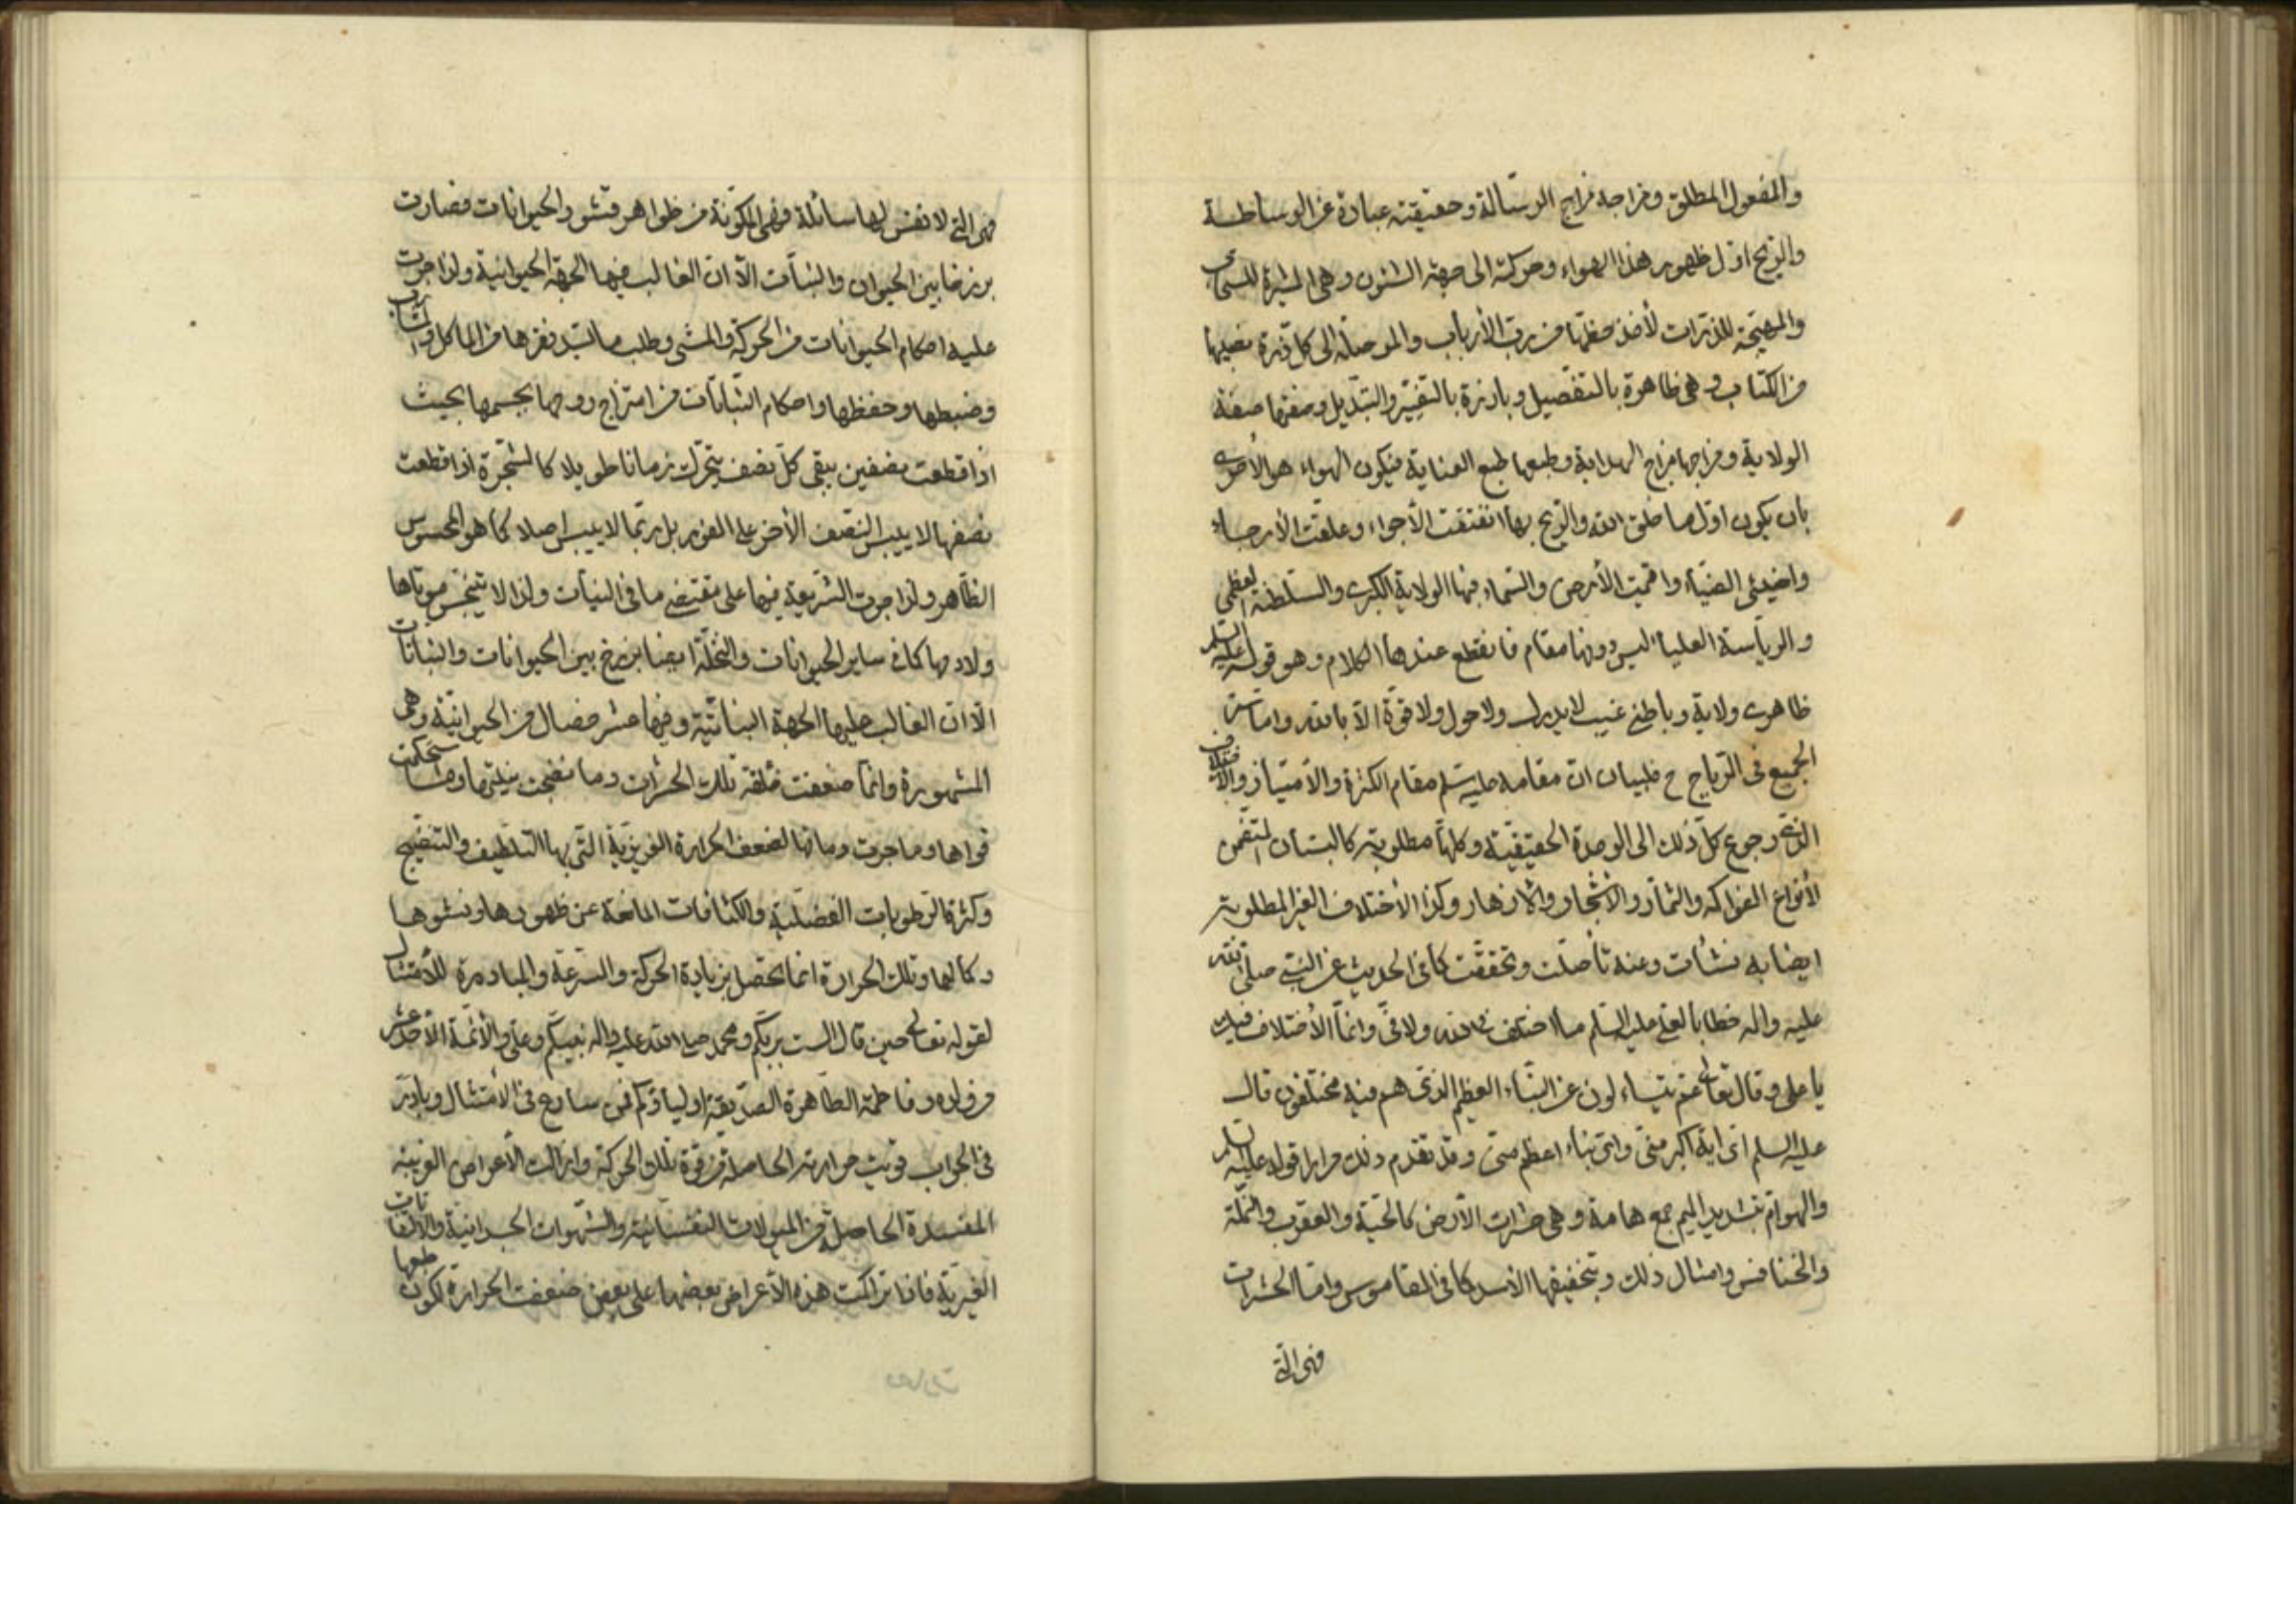 والمفعول المطلق ومزاجه مزاج الرسالة وحقيقته عبارة عن الوساطة
والريح اول ظهور هذا الهواء وحركته الى جهة الشئون وهى المثيرة للسحاب
والمهيّجة للذرّات لأخذ حظّها من ربّ الأرباب والموصلة الى كل ذرة نصيبها
من الكتاب وهى ظاهرة بالتفصيل وبارزة بالتغيير والتبديل وصفتها صفة
الولاية ومزاجها مزاج الهداية وطبعها طبع العناية فيكون الهواء هو الأحرى
بان يكون اوّل ما خلق الله والريح بها انفتقت الأجواء وعلقت الأرجاء
واضيئ الضياء واقيمت الأرض والسّماء فيها الولاية الكبرى والسلطنة العظمى
والرياسة العليا ليس دونها مقام فانقطع عندها الكلام وهو قوله عليه السلم
ظاهرى ولاية وباطنى غيب لا يدرك ولا حول ولا قوّة الّا بالله واما سرّ
الجميع فى الرّياح ح فلبيان انّ مقامه عليه سلم مقام الكثرة والأمتياز والأختلاف
الذى رجوع كلّ ذلك الى الوحدة الحقيقيّة وكلها مطلوبة كالبستان المتضمن
لأنواع الفواكه والثمار والأشجار والأزهار وكذا الأختلاف الغير المطلوبة
ايضا به نشأت وعنه تأصّلت وتحققت كما فى الحديث عن النبىّ صلى الله
عليه واله خطابا لعلى عليه السلم ما اختلف فى الله ولا فىّ وانّما الأختلاف فيك
يا على وقال تعالى عمّ يتساءلون عن النّباء العظيم الذى هم فيه مختلفون قال
عليه السلم اىّ اية اكبر منّى واىّ نباء اعظم منّى وقد تقدم ذلك مرارا قوله عليه السلم
والهوامّ بتشديد الميم جمع هامة وهى حشرات الأرض كالحيّة والعقرب والنملة
والخنافس وامثال ذلك وبتخفيفها الأسد كما فى القاموس وامّا الحشرات
فهى التى
فهى التى لا نفس لها سائلة وهى المكوّنة من ظواهر قشور الحيوانات فصارت
برزخا بين الحيوان والنبات الّا ان الغالب فيها الجهة الحيوانية ولذا جرت
عليه احكام الحيوانات من الحركة والمشى وطلب ما لبّد فقرها من المأكل والمشارب
وضبطها وحفظها واحكام النّباتات من امتزاج روحها بجسمها بحيث
اذا قطعت نصفين يبقى كلّ نصف يتحرّك زمانا طويلا كالشجرة اذا قطعت
نصفها لا ييبس النصف الأخر على الفور بل ربّما لا ييبس اصلا كما هو المحسوس
الظاهر ولذا جرت الشريعة فيها على مقتضى ما فى النبات ولذا لا تنجّس موتاها
ولا دمها كما فى ساير الحيوانات والنخلة ايضا برزخ بين الحيوانات والنباتات
الّا انّ الغالب عليها الجهة النباتيّة وفيها عشر خصال من الحيوانيّة وهى
المشهورة وانّما ضعفت خلقة تلك الحشرات وما نضجت بنيتها وما استحكمت
قواها وما جرت دمائها لضعف الحرارة الغريزيّة الّتى بها التلطيف والتنضيج
وكثرة الرطوبات الفضليّة والكثافات المانعة عن ظهورها ونشوها
وكمالها وتلك الحرارة انما تحصل بزيادة الحركة والسرعة والمبادرة للأمتثال
لقوله تعالى حين قال الست بربّكم ومحمد صلى الله عليه واله نبيّكم وعلى والأئمة الأحد عشر
من ولده وفاطمة الطّاهرة الصدّيقة اولياؤكم فمن سارع فى الأمتثال وبادر
فى الجواب قويت حرارته الحاصلة من قوة تلك الحركة وازالت الأعراض الغريبة
المفسدة الحاصلة من الميولات النفسانية والشهوات الجسدانيّة والألتفاتات
الغيريّة فاذا تراكمت هذه الأعراض بعضها على بعض ضعفت الحرارة لكون طبعها